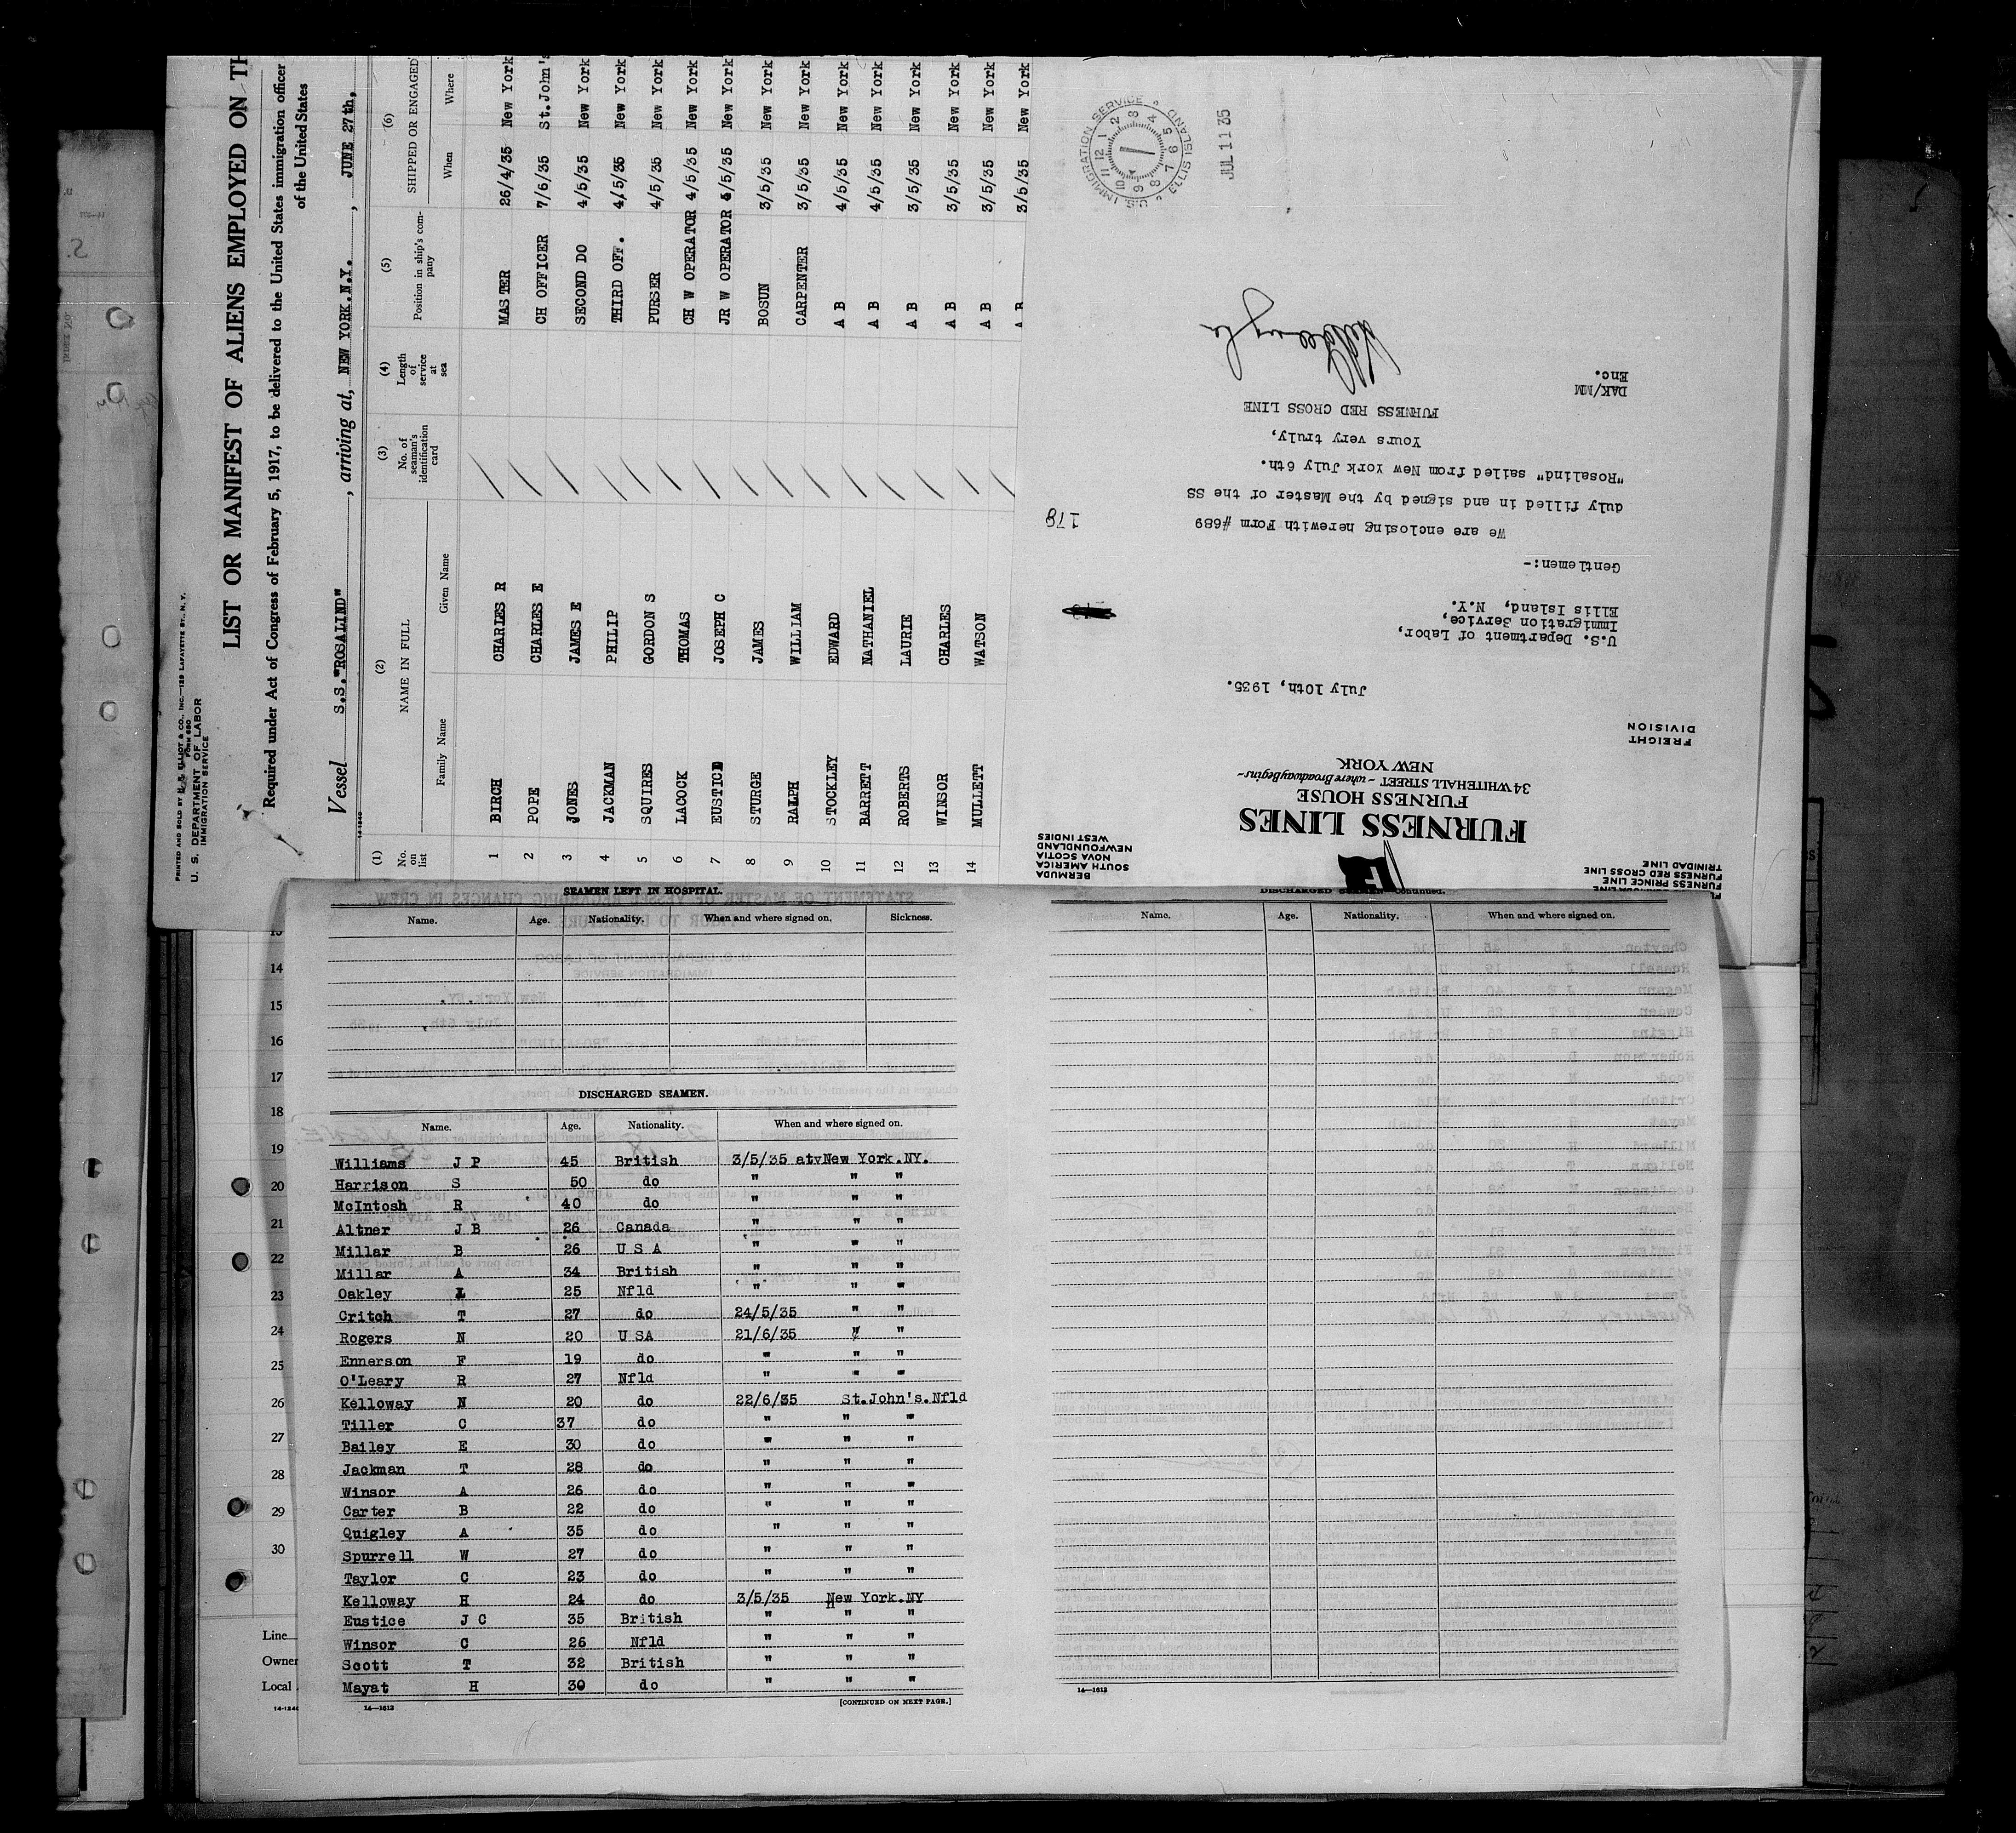 PRINTED AND SOLD BY
ELLIOT & CO., INC.—129 LAFAYETTE ST., N.Y.
FORM 680
U. S. DEPARTMENT OF LABOR
IMMIGRATION SERVICE
LIST OR MANIFEST OF ALIENS EMPLOYED ON TH
Required under Act of Congress of February 5, 1917, to be delivered to the United States immigration officer
of the United States
Vessel S.S."ROSALIND" , arriving at, NEW YORK.N.Y. , JUNE 27th,
14-1240
(1) (2) (3) (4) (5) (6)
No. on list NAME IN FULL No. of seaman's identification card Length of service at sea Position in ship's company SHIPPED OR ENGAGED
Family Name Given Name When Where
1 BIRCH CHARLES R MASTER 26/4/35 New York
2 POPE CHARLES E CH OFFICER 7/6/35 St.John's
3 JONES JAMES E SECOND DO 4/5/35 New York
4 JACKMAN PHILIP THIRD OFF. 4/5/35 New York
5 SQUIRES GORDON S PURSER 4/5/35 New York
6 LACOCK THOMAS CH W OPERATOR 4/5/35 New York
7 EUSTICE JOSEPH C JR W OPERATOR 4/5/35 New York
8 STURGE JAMES BOSUN 3/5/35 New York
9 RALPH WILLIAM CARPENTER 3/5/35 New York
10 STOCKLEY EDWARD A B 4/5/35 New York
11 BARRETT NATHANIEL A B 4/5/35 New York
12 ROBERTS LAURIE A B 3/5/35 New York
13 WINSOR CHARLES A B 3/5/35 New York
14 MULLETT WATSON A B 3/5/35 New York
A B 3/5/35 New York
FURNESS PRINCE LINE
FURNESS RED CROSS LINE
TRINIDAD LINE
BERMUDA
SOUTH AMERICA
NOVA SCOTIA
NEWFOUNDLAND
WEST INDIES
FURNESS LINES
FURNESS HOUSE
34 WHITEHALL STREET - where Broadway Begins -
NEW YORK
FREIGHT
DIVISION
July 10th, 1935.
U.S. Department of Labor,
Immigration Service,
Ellis Island, N.Y.
Gentlemen:-
We are enclosing herewith Form #689
duly filled in and signed by the Master of the SS
"Rosalind" sailed from New York July 6th.
178
Yours very truly,
FURNESS RED CROSS LINE
DAK/MM
Enc.
U.S. IMMIGRATION SERVICE
ELLIS ISLAND
12 1 2 3 4 5 6 7 8 9 10 11
JUL 11 35
SEAMEN LEFT IN HOSPITAL.
Name. Age. Nationality. When and where signed on. Sickness.
DISCHARGED SEAMEN.
Name. Age. Nationality. When and where signed on.
Williams J P 45 British 3/5/35 atvNew York.NY.
Harrison S 50 do " " "
McIntosh R 40 do " " "
Altner J B 26 Canada " " "
Millar B 26 U S A " " "
Millar A 34 British " " "
Oakley L 25 Nfld " " "
Critch T 27 do 24/5/35 " "
Rogers N 20 U SA 21/6/35 " "
Ennerson F 19 do " " "
O'Leary R 27 Nfld " " "
Kelloway N 20 do 22/6/35 St.John's.Nfld
Tiller C 37 do " " "
Bailey E 30 do " " "
Jackman T 28 do " " "
Winsor A 26 do " " "
Carter B 22 do " " "
Quigley A 35 do " " "
Spurrell W 27 do " " "
Taylor C 23 do " " "
Kelloway H 24 do 3/5/35 New York.NY
Eustice J C 35 British " " "
Winsor C 26 Nfld " " "
Scott T 32 British " " "
Mayat H 30 do " " "
14—1612
[CONTINUED ON NEXT PAGE.]
DISCHARGED SEAMEN—Continued.
Name. Age. Nationality. When and where signed on.
14—1612
14
15
16
17
18
19
20
21
22
23
24
25
26
27
28
29
30
Line
Owner
Local
14-1240